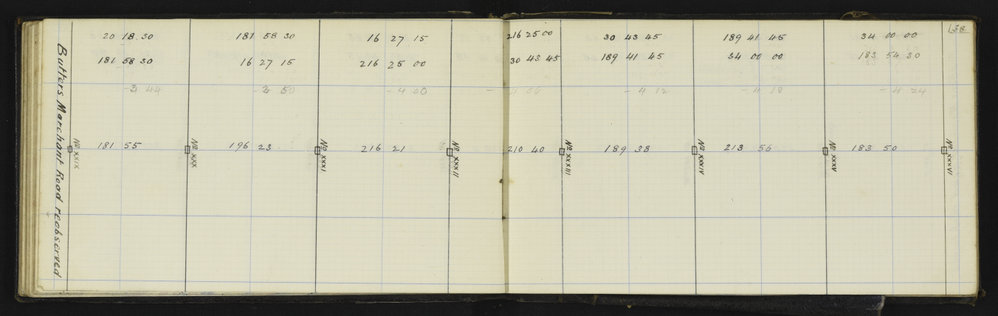 138
20 18 30   181 58 30   16 27 15   216 25 00   30 43 45   189 41 45   34 00 00
181 58 30   16 27 15   216 25 00   30 43 45   189 41 45   34 00 00   183 54 30
-3 44   -3 50   -4 00   -4 06   -4 12   -4 18   -4 24
181 55   196 23   216 21   210 40   189 38   213 56   183 50
No XXIX   No XXX   No XXXI   No XXXII   No XXXIII   No XXXIV   No XXXV   No XXXVI
Butters Marchant Road reobserved